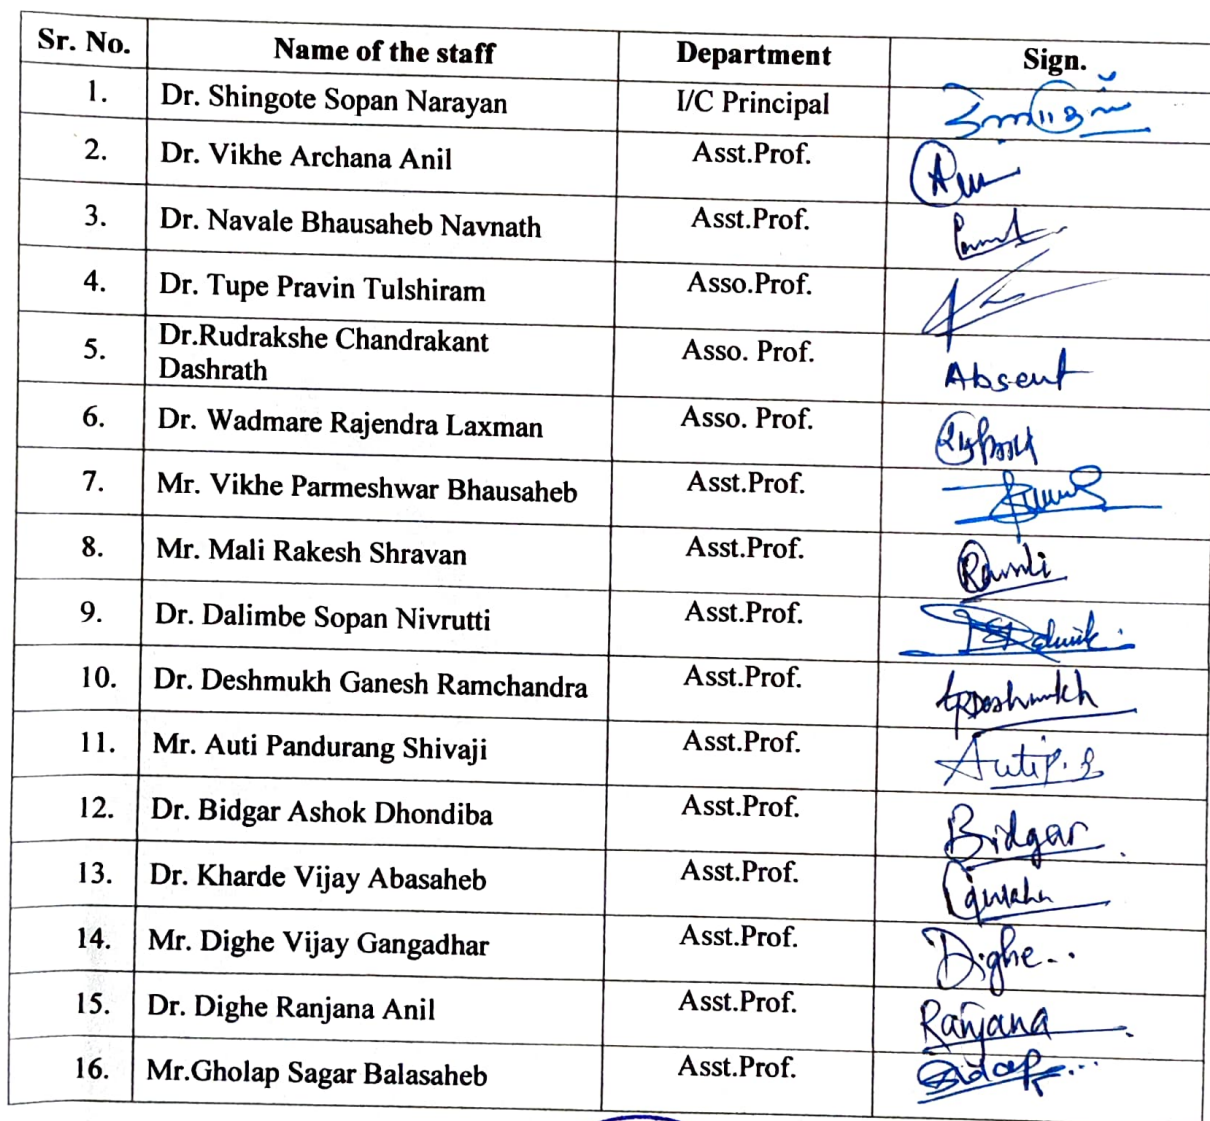 Sr. No. Name of the staff Department Sign.
1. Dr. Shingote Sopan Narayan I/C Principal
2. Dr. Vikhe Archana Anil Asst.Prof.
3. Dr. Navale Bhausaheb Navnath Asst.Prof.
4. Dr. Tupe Pravin Tulshiram Asso.Prof.
5. Dr.Rudrakshe Chandrakant Asso. Prof. Absent
Dashrath
6. Dr. Wadmare Rajendra Laxman Asso. Prof.
7. Mr. Vikhe Parmeshwar Bhausaheb Asst.Prof.
8. Mr. Mali Rakesh Shravan Asst.Prof.
9. Dr. Dalimbe Sopan Nivrutti Asst.Prof.
10. Dr. Deshmukh Ganesh Ramchandra Asst.Prof. GRDeshmukh
11. Mr. Auti Pandurang Shivaji Asst.Prof. Auti P. S
12. Dr. Bidgar Ashok Dhondiba Asst.Prof. Bidgar
13. Dr. Kharde Vijay Abasaheb Asst.Prof.
14. Mr. Dighe Vijay Gangadhar Asst.Prof. Dighe
15. Dr. Dighe Ranjana Anil Asst.Prof. Ranjana
16. Mr.Gholap Sagar Balasaheb Asst.Prof.